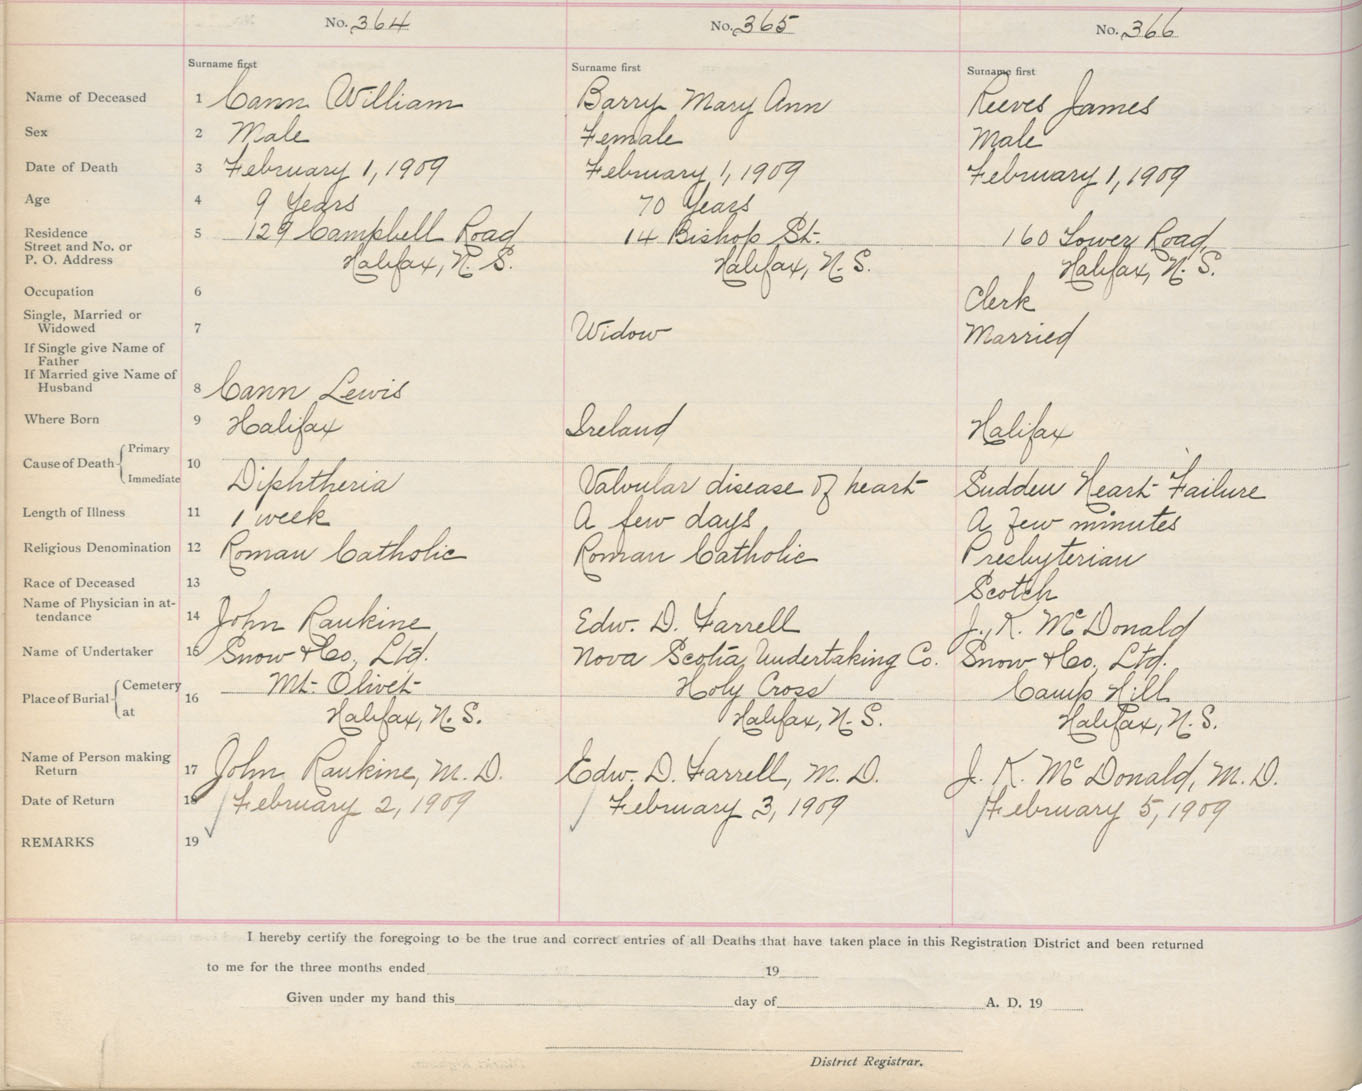 No. 364 No. 365 No. 366
Surname first Surname first Surname first
Name of Deceased 1 Cann William Barry Mary Ann Reeves James
Sex 2 Male Female Male
Date of Death 3 February 1, 1909 February 1, 1909 February 1, 1909
Age 4 9 Years 70 Years
Residence 5 129 Campbell Road 14 Bishop St. 160 Lower Road,
Street and No. or
P. O. Address Halifax, N. S. Halifax, N. S. Halifax, N. S.
Occupation 6 Clerk
Single, Married or
Widowed 7 Widow Married
If Single give Name of
Father
If Married give Name of
Husband 8 Cann Lewis
Where Born 9 Halifax Ireland Halifax
Cause of Death Primary 10
Immediate Diphtheria Valvular disease of heart Sudden Heart Failure
Length of Illness 11 1 week A few days A few minutes
Religious Denomination 12 Roman Catholic Roman Catholic Presbyterian
Race of Deceased 13 Scotch
Name of Physician in at-
tendance 14 John Rankine Edw. D. Farrell J. K. McDonald
Name of Undertaker 15 Snow & Co, Ltd. Nova Scotia Undertaking Co. Snow & Co, Ltd.
Place of Burial Cemetery 16 Mt. Olivet Holy Cross Camp Hill
at Halifax, N. S. Halifax, N. S. Halifax, N. S.
Name of Person making
Return 17 John Rankine, M. D. Edw. D. Farrell, M. D. J. K. McDonald, M. D.
Date of Return 18 February 2, 1909 February 3, 1909 February 5, 1909
REMARKS 19
I hereby certify the foregoing to be the true and correct entries of all Deaths that have taken place in this Registration District and been returned
to me for the three months ended 19
Given under my hand this day of A. D. 19
District Registrar.